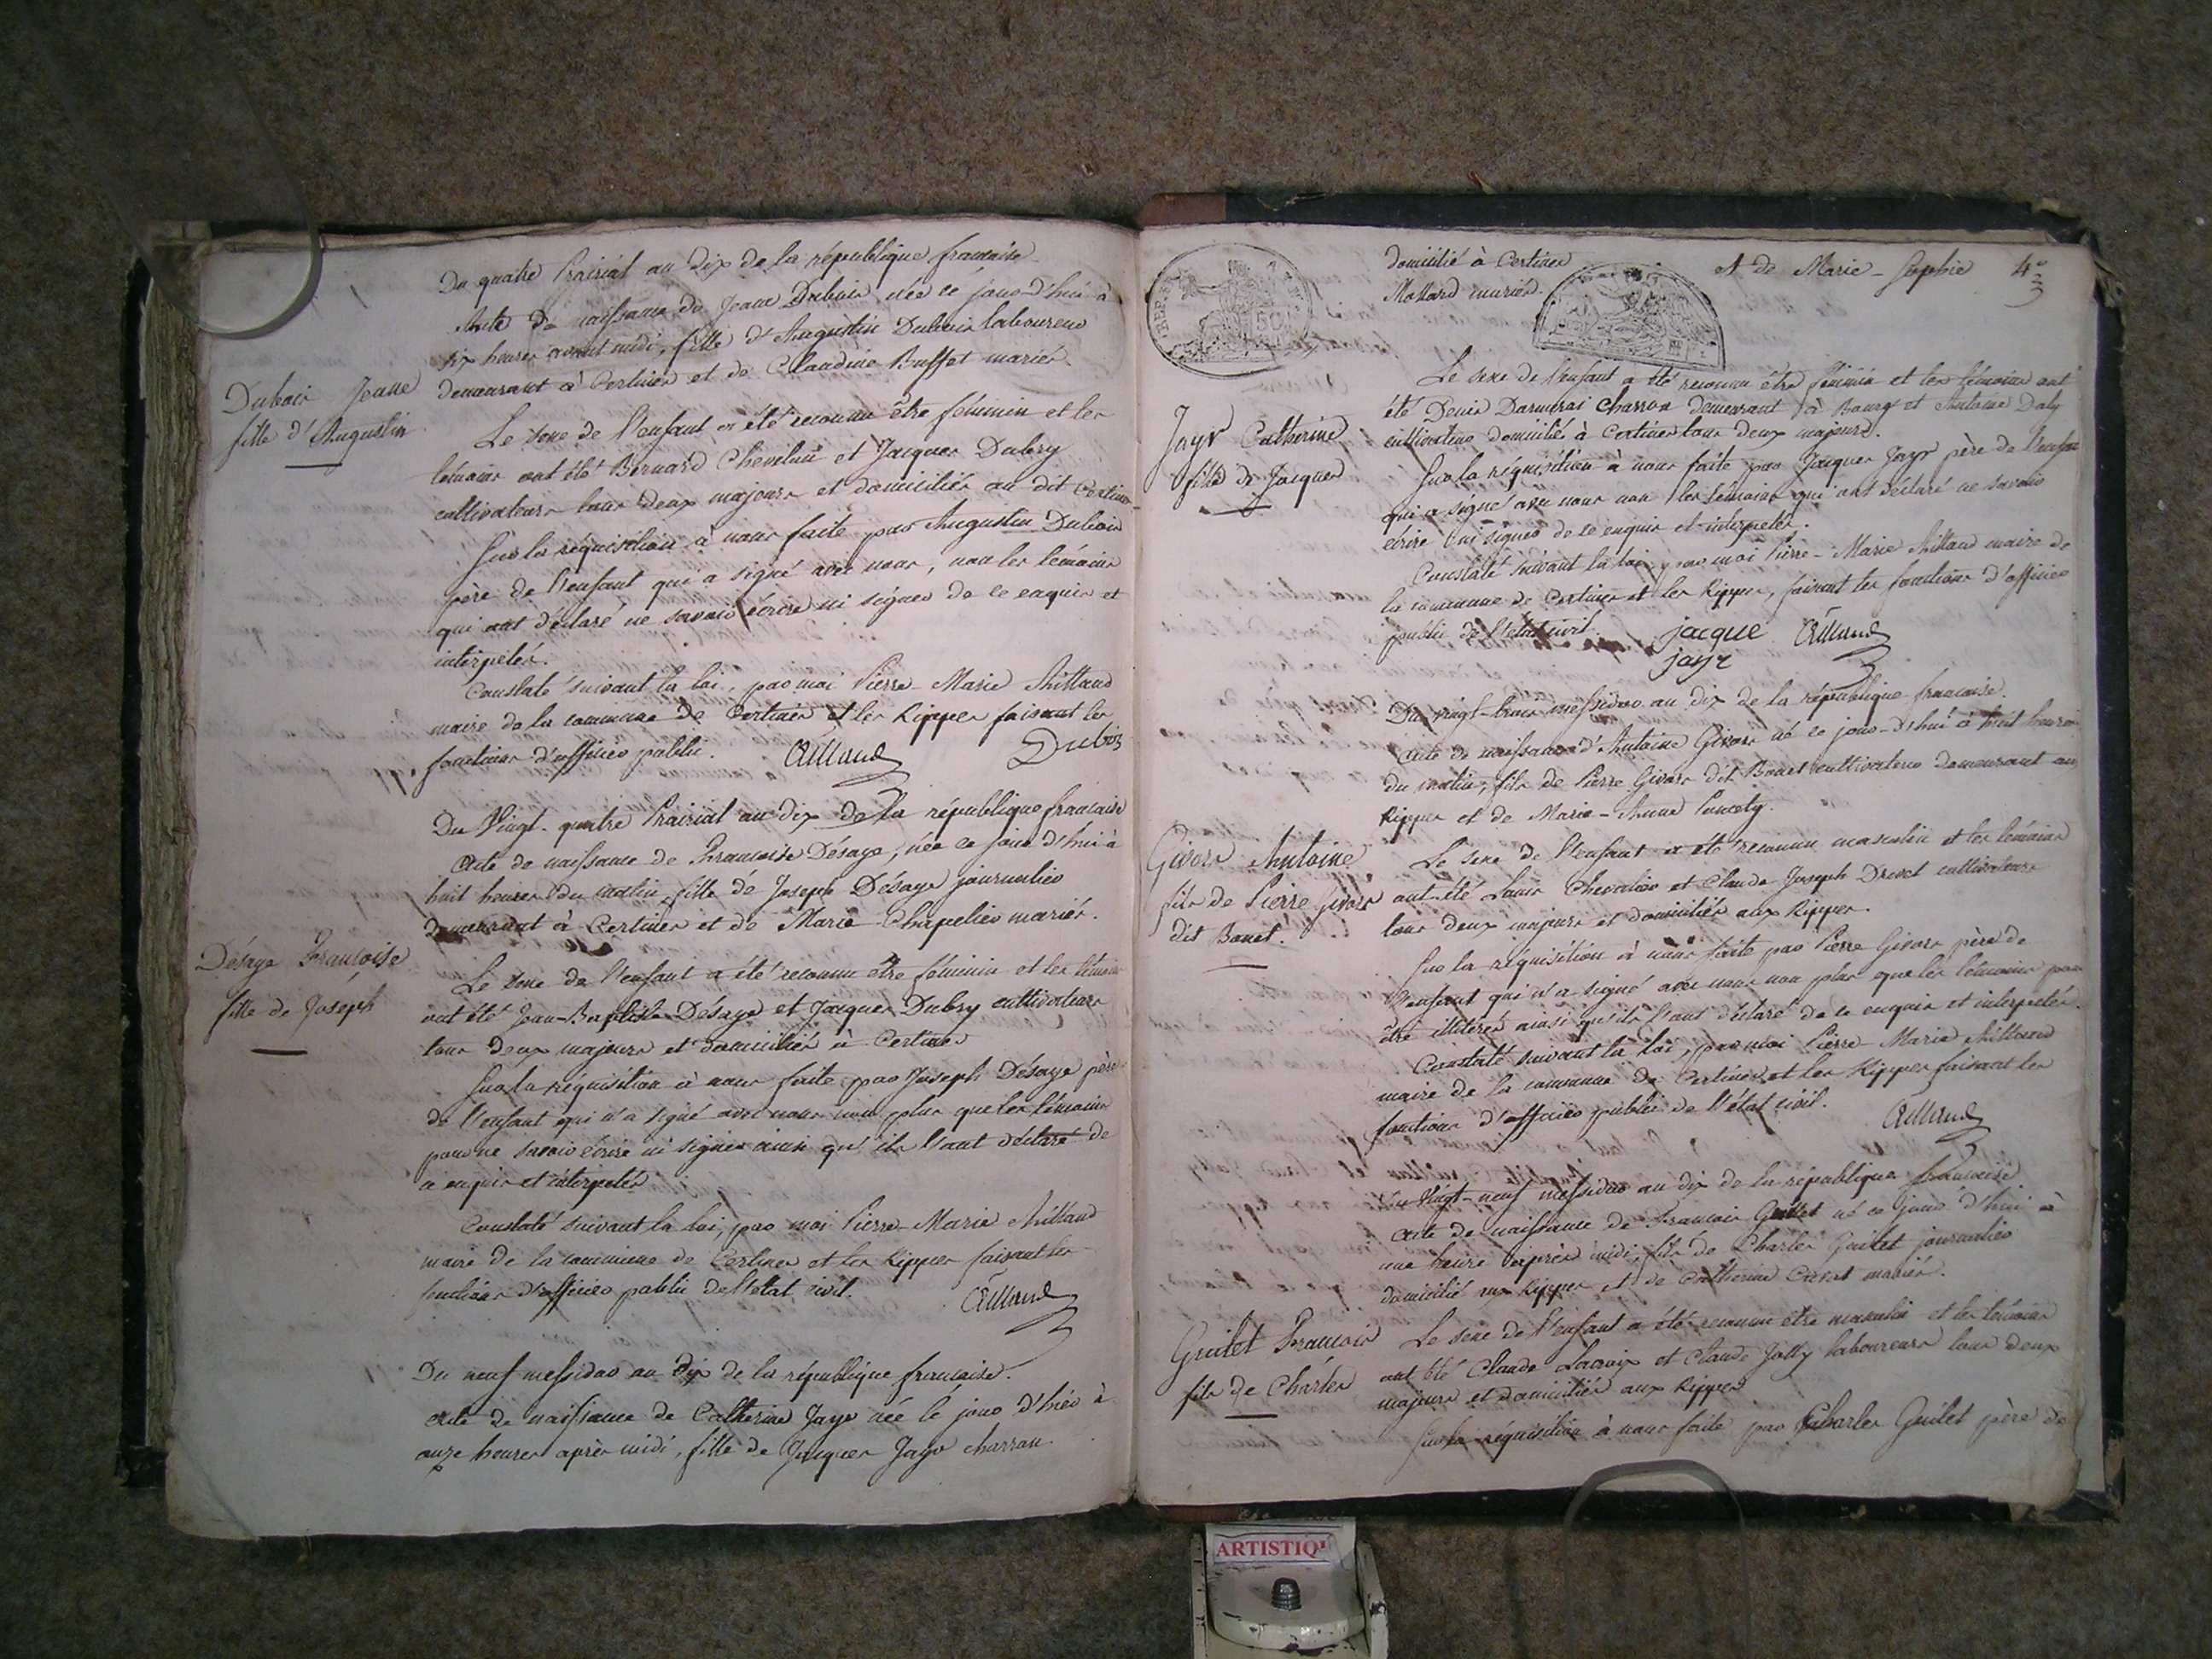 Du quatre Prairial an dix de la république francaise
Acte de naissance de Jeane Dubois née ce jour-d'hui à
six heures avant midi, fille d'Augustin Dubois laboureur
demeurant à Certines et de Claudine Buffet mariés.
Dubois Jeane
fille d'Augustin
Le sexe de l'enfant a été reconnu être féminin et les
témoins ont été Bernard Chevelu et Jacques Dubry
cultivateurs tous deux majeurs et domiciliés au dit Certines
Sur la réquisition à nous faite par Augustin Dubois
père de l'enfant qui a signé avec nous, non les témoins
qui ont déclaré ne savoir écrire ni signer de ce enquis et
interpelés.
Constaté suivant la loi, par moi Pierre-Marie Millaud
maire de la commune de Certines et les Rippes faisant les
fonctions d'officier public.
Dubois
Du Vingt-quatre Prairial an dix de la république francaise
Acte de naissance de Francoise Désage, née ce jour d'hui à
huit heures du matin, fille de Joseph Désage journalier
demeurant à Certines et de Marie Chapelier mariés.
Désage Francoise
fille de Joseph
Le sexe de l'enfant a été reconnu être féminin et les témoins
ont été Jean-Baptiste Désage et Jacques Dubry cultivateurs
tous deux majeurs et domiciliés à Certines
Sur la réquisition à nous faite par Joseph Désage père
de l'enfant qui n'a signé avec nous non plus que les témoins
pour ne savoir écrire ni signer ainsi qu'ils l'ont déclaré de
ce enquis et interpelés
Constaté suivant la loi, par moi Pierre-Marie Millaud
maire de la commune de Certines et les Rippes faisant les
fonctions d'officier public de l'état civil.
Du neuf messidor an dix de la république francaise.
Acte de naissance de Catherine Jayr née le jour d'hier à
onze heures après midi, fille de Jacques Jayr charron
domicilié à Certines et de Marie-Sophie 4e
Mollard mariés.
REP.
50
Le sexe de l'enfant a été reconnu être féminin et les témoins ont
été Denis charron demeurant à Bourg et Antoine Daly
cultivateur domicilié à Certines tous deux majeurs.
Jayr Catherine
fille de Jacques
Sur la réquisition à nous faite par Jacques Jayr père de l'enfant
qui a signé avec nous non les témoins qui ont déclaré ne savoir
écrire ni signer de ce enquis et interpelés.
Constaté suivant la loi, par moi Pierre-Marie Millaud maire de
la commune de Certines et les Rippes, faisant les fonctions d'officier
public de l'état civil. jacque
jayr
Du vingt-trois messidor an dix de la république francaise.
Acte de naissance d'Antoine Givors né ce jour-d'hui à huit heures
du matin, fils de Pierre Givors dit Bonet cultivateur demeurant aux
Rippes et de Marie-Anne Poncety.
Givors Antoine
fils de Pierre Givors
dit Bonet.
Le sexe de l'enfant a été reconnu masculin et les témoins
ont été Louis Chevalier et Claude Joseph Drevet cultivateurs
tous deux majeurs et domiciliés aux Rippes.
Sur la réquisition à nous faite par Pierre Givors père de
l'enfant qui n'a signé avec nous non plus que les témoins pour
être illitérés ainsi qu'ils l'ont déclaré de ce enquis et interpelés.
Constaté suivant la loi, par moi Pierre-Marie Millaud
maire de la commune de Certines et les Rippes faisant les
fonctions d'officier public de l'état civil.
Du Vingt-neuf messidor an dix de la république francaise
Acte de naissance de Francois Guilet né ce jour d'hui à
une heure après midi, fils de Charles Guilet journalier
domicilié aux Rippes et de Catherine mariés.
Guilet Francois
fils de Charles
Le sexe de l'enfant a été reconnu être masculin et les témoins
ont été Claude Lacroix et Claude Jolly laboureurs tous deux
majeurs et domiciliés aux Rippes
Sur la réquisition à nous faite par Charles Guilet père de
ARTISTIQ